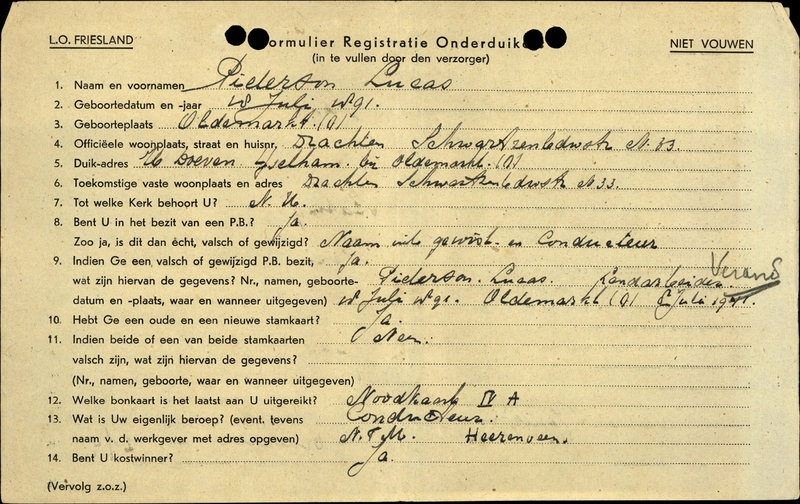 L.O. FRIESLAND
ormulier Registratie Onderduik
NIET VOUWEN
(in te vullen door den verzorger)
1. Naam en voornamen Piederson Lucas
2. Geboortedatum en -jaar Juli
3. Geboorteplaats Oldemarkt (O)
4. Officiëele woonplaats, straat en huispr. Drachten N. 33
5. Duik-adres Oldemarkt. (O)
6. Toekomstige vaste woonplaats en adres Drachten N 33.
7. Tot welke Kerk behoort U? N. H.
8. Bent U in het bezit van een P.B.? Ja.
Zoo ja, is dit dan écht, valsch of gewijzigd? Naam en Conducteur
9. Indien Ge een valsch of gewijzigd P.B. bezit, Ja. Verans
wat zijn hiervan de gegevens? Nr., namen, geboorte- Piederson. Lucas. Landarbeider.
datum en -plaats, waar en wanneer uitgegeven) Juli Oldemarkt (O) Juli 1941.
10. Hebt Ge een oude en een nieuwe stamkaart? Ja.
11. Indien beide of een van beide stamkaarten Neen.
valsch zijn, wat zijn hiervan de gegevens?
(Nr., namen, geboorte, waar en wanneer uitgegeven)
12. Welke bonkaart is het laatst aan U uitgereikt? Noodkaart IV A
13. Wat is Uw eigenlijk beroep? (event. tevens Conducteur.
naam v. d. werkgever met adres opgeven) N.T.M. Heerenveen.
14. Bent U kostwinner? Ja.
(Vervolg z.o.z.)